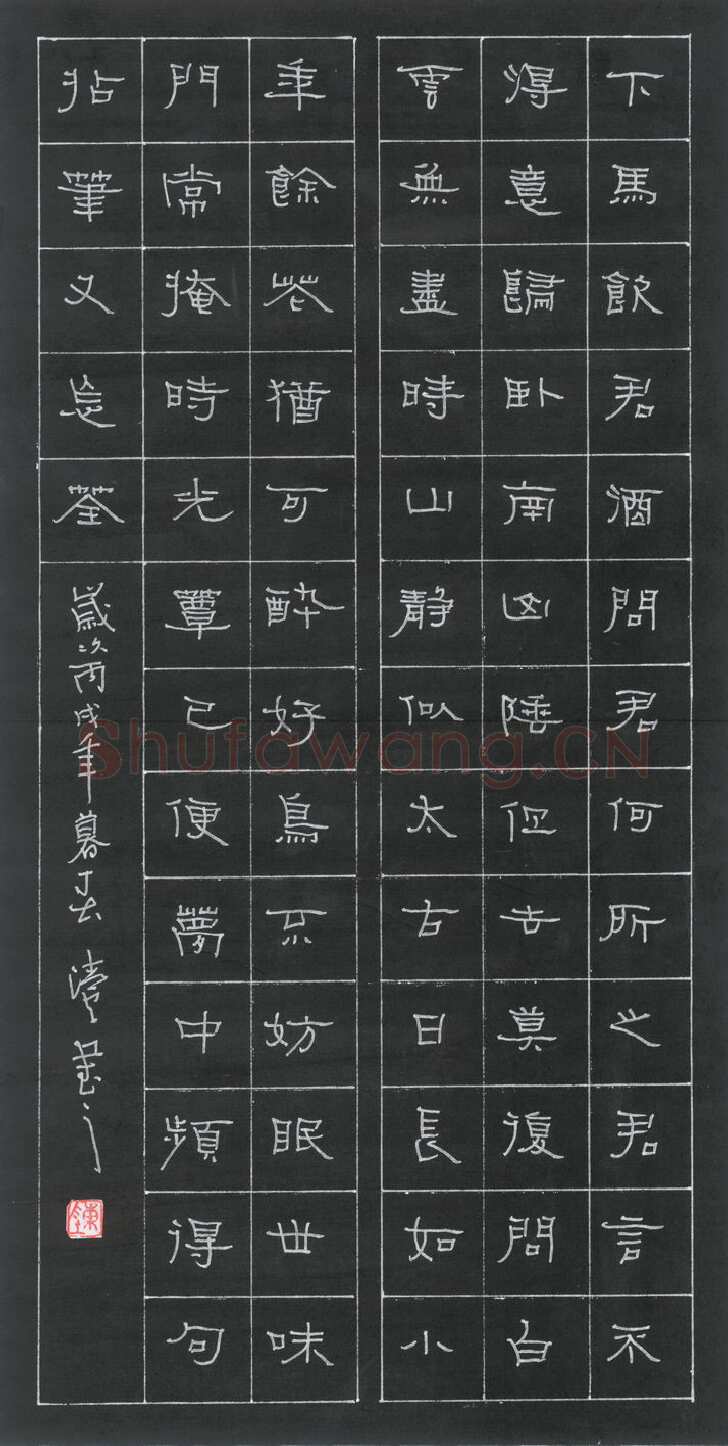 下馬飲君酒問君何所之君言不
得意歸臥南山陲但去莫復問白
雲無盡時山靜似太古日長如小
年餘花猶可醉好鳥不妨眠世味
門常掩時光簟已便夢中頻得句
拈筆又忘筌
歲次丙戌年暮春書之
Shufawang.CN